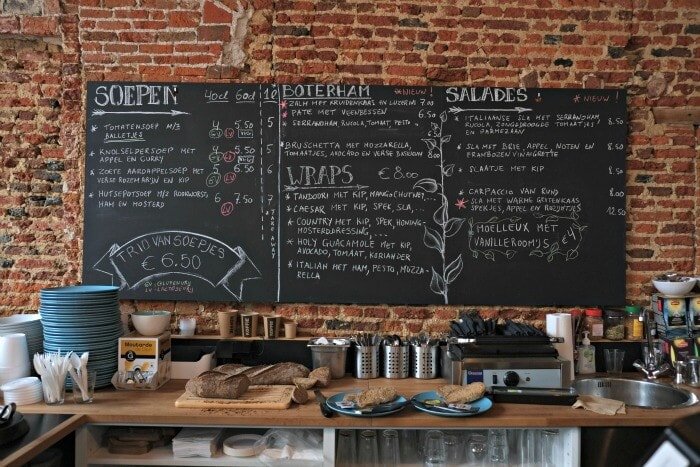 SOEPEN 40cl 60cl 1l
* TOMATENSOEP M/Z 4 5.50 5
BALLETJES GV LV VEG
* KNOLSELDERSOEP MET 4 5.50 5
APPEL EN CURRY GV VEG
* ZOETE AARDAPPELSOEP MET 5 6.50 6
VERSE ROZEMARIJN EN KIP GV LV
* HUTSEPOTSOEP M/Z ROOKWORST, 6 7.50 7
HAM EN MOSTERD LV
TAKE AWAY
TRIO VAN SOEPJES
€ 6.50
GV: GLUTENVRIJ
LV: LACTOSEVRIJ
BOTERHAM * NIEUW !
* ZALM MET KRUIDENKAAS EN 7.00
* PATE MET VEENBESSEN 6.50
* SERRANOHAM RUCOLA, TOMAAT, PESTO
BRUSCHETTA MET MOZZARELLA, 8.00
TOMAATJES, AVOCADO EN VERSE BASILICUM
WRAPS € 8.00
* TANDOORI MET KIP, MANGOCHUTNEY,...
* CAESAR MET KIP, SPEK, SLA,...
* COUNTRY MET KIP, SPEK, HONING-
MOSTERDDRESSING,...
* HOLY GUACAMOLE MET KIP,
AVOCADO, TOMAAT, KORIANDER
* ITALIAN MET HAM, PESTO, MOZZA-
RELLA
SALADES: * NIEUW !
* ITALIAANSE SLA MET SERRANOHAM, 8.50
RUCOLA, ZONGEDROOGDE TOMAATJES
EN PARMEZAAN
* SLA MET BRIE, APPEL, NOTEN EN 8.50
FRAMBOZEN VINAIGRETTE
* SLAATJE MET KIP 8.50
CARPACCIO VAN RUND 8.00
* SLA MET WARME GEITENKAAS
SPEKJES, APPEL EN 12.50
MOELLEUX MET
VANILLEROOMIJS € 4
Moutarde